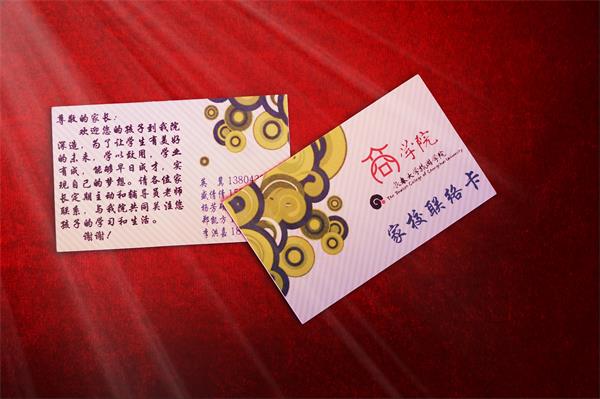 尊敬的家长：
欢迎您的孩子到我院
深造，为了让学生有美好
的未来，学以致用，学业
有成，能够早日成才，实
现自己的梦想。请各位家
长定期主动和辅导员老师
联系，与我院共同关注您
孩子的学习和生活。
谢谢！
英 箕 13804
杨芳
郑凯方
李洪嘉 18
商学院
长春大学旅游学院
The Tourism College of Changchun University
家校联络卡